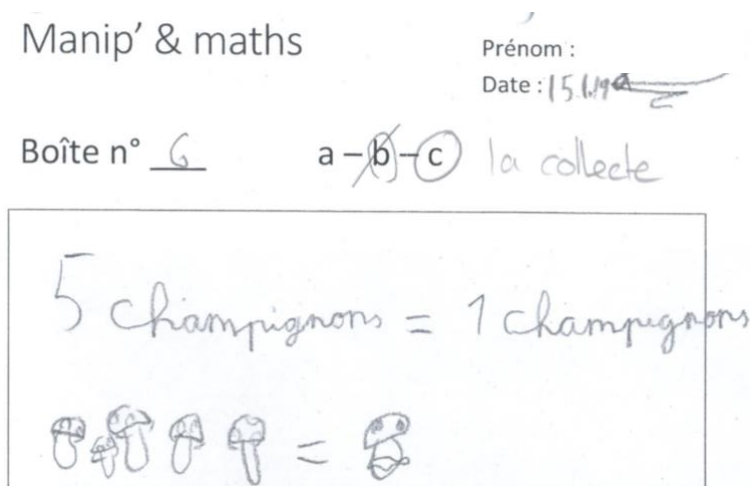 Manip' & maths
Prénom :
Date : 15.1.19
Boîte n° 6 a – b – c la collecte
5 champignons = 1 champignons
=